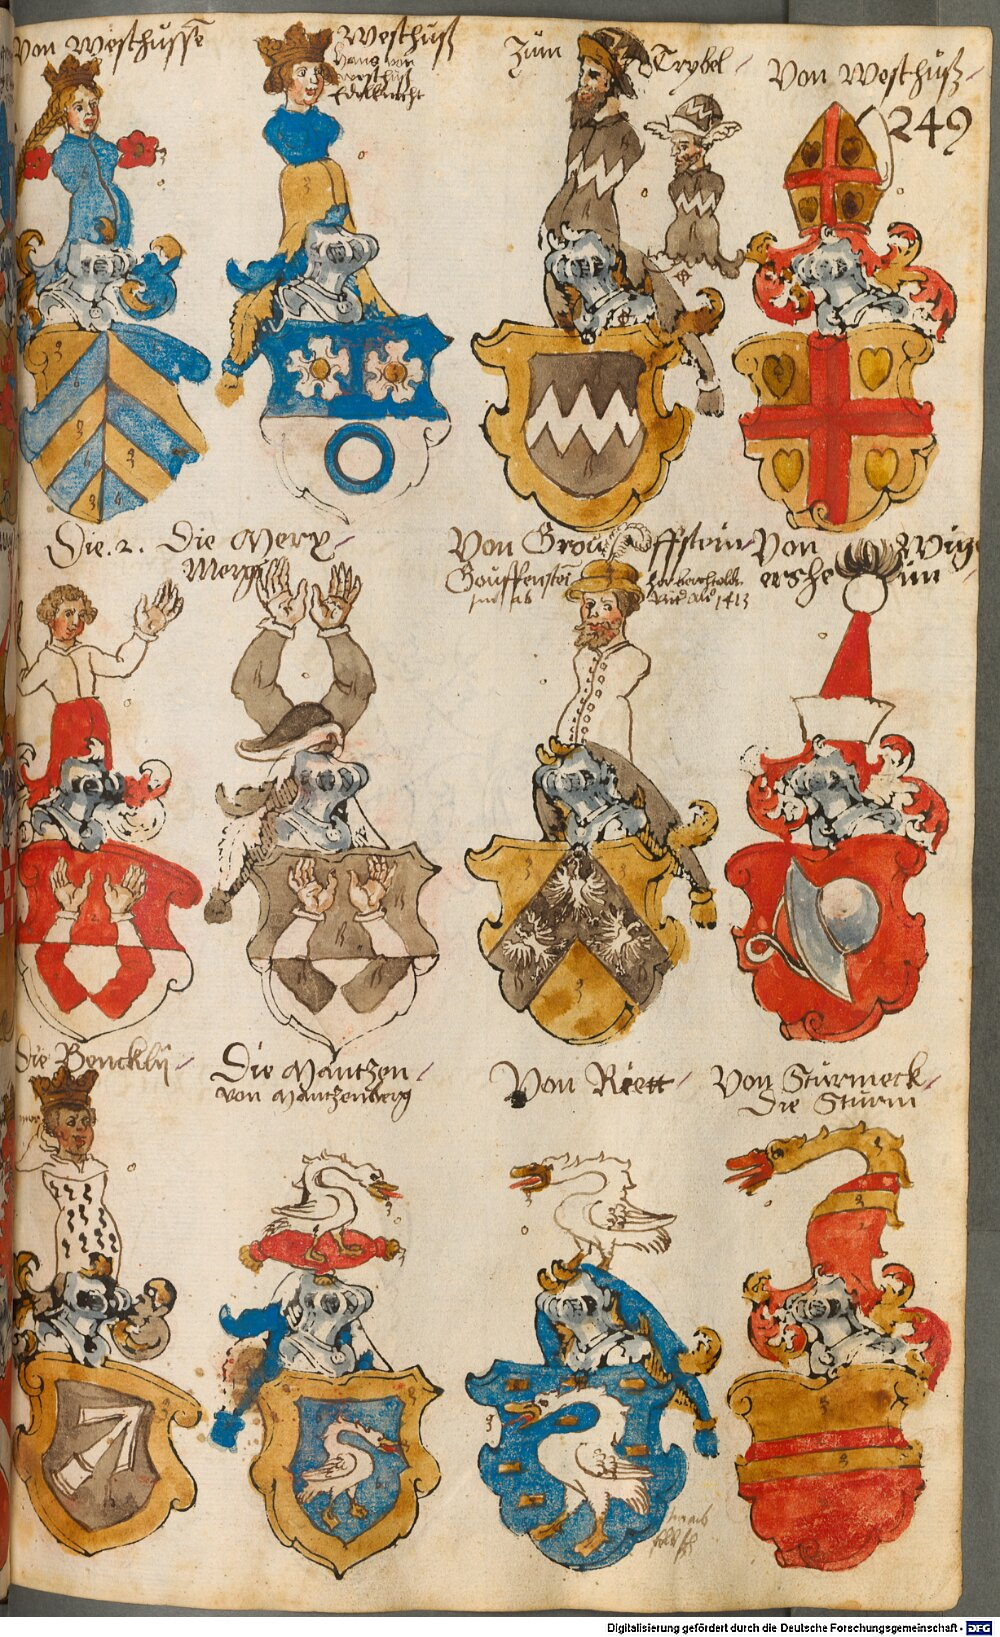 Von Westhussen
Westhuß
Hans von
Westhuß
Edelknecht
Zum Trybel
Von Westhuß
249
Die. 2. Die Merx
Merx
Von Grouffstein
Gouffenstein
1413
Von Wigersheim
Die Bencklÿ
Die Mantzen
von Mantzenberg
Von Riett
Von Sturmeck
Die Sturm
Digitalisierung gefördert durch die Deutsche Forschungsgemeinschaft - DFG